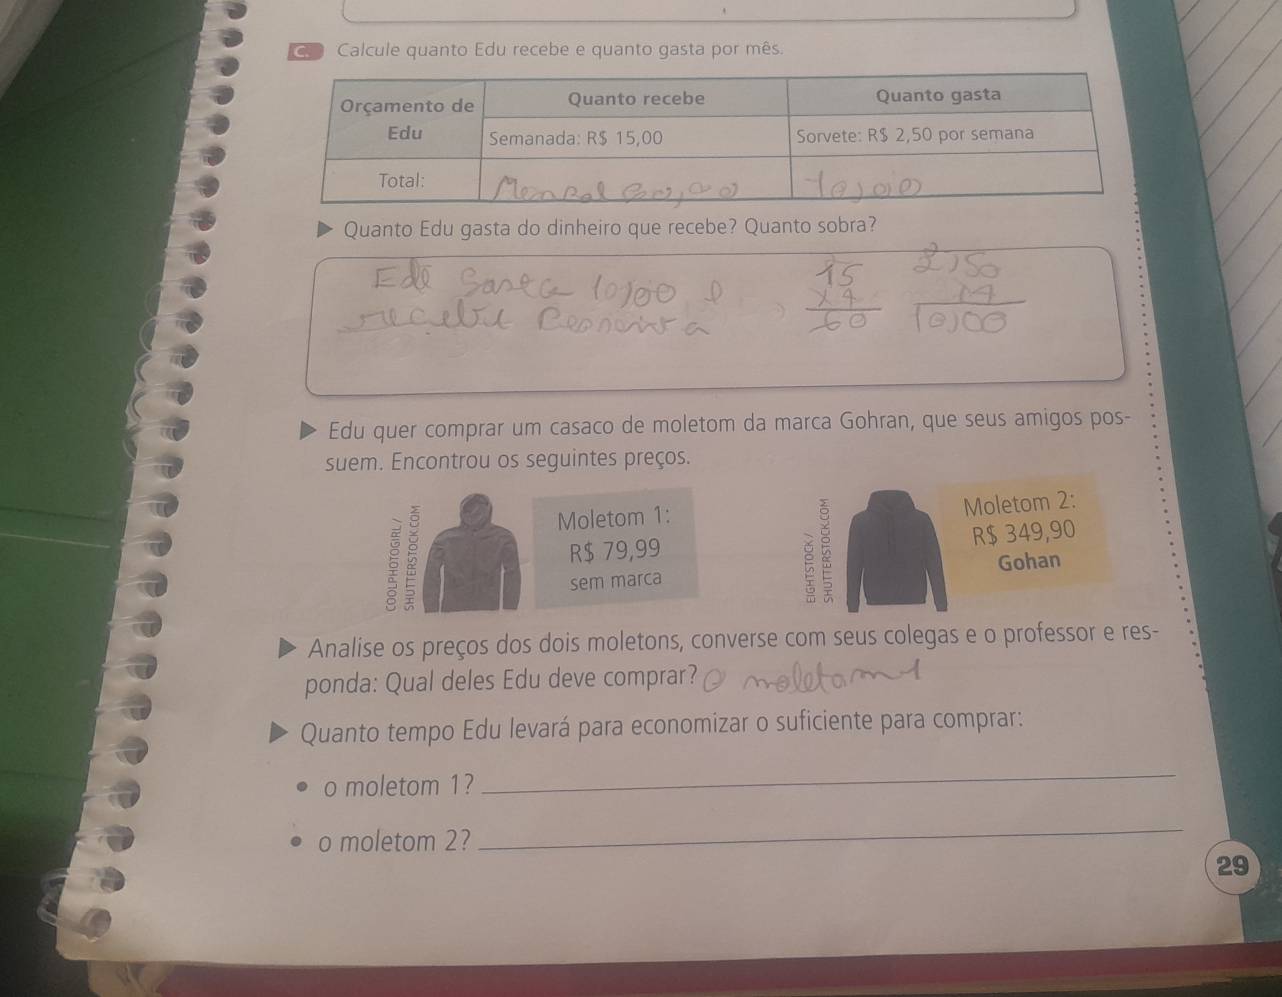 C. Calcule quanto Edu recebe e quanto gasta por mês.
Orçamento de Edu
Quanto recebe
Quanto gasta
Semanada: R$ 15,00
Sorvete: R$ 2,50 por semana
Total:
Mensal
10,00
Quanto Edu gasta do dinheiro que recebe? Quanto sobra?
10,00 e
15
x 4
60
2,50
x4
10,00
Edu quer comprar um casaco de moletom da marca Gohran, que seus amigos pos-
suem. Encontrou os seguintes preços.
COOLPHOTOGIRL/
SHUTTERSTOCK.COM
Moletom 1:
R$ 79,99
sem marca
EIGHTSTOCK/
SHUTTERSTOCK.COM
Moletom 2:
R$ 349,90
Gohan
Analise os preços dos dois moletons, converse com seus colegas e o professor e res-
ponda: Qual deles Edu deve comprar? O moletom 1
Quanto tempo Edu levará para economizar o suficiente para comprar:
• o moletom 1?
• o moletom 2?
29